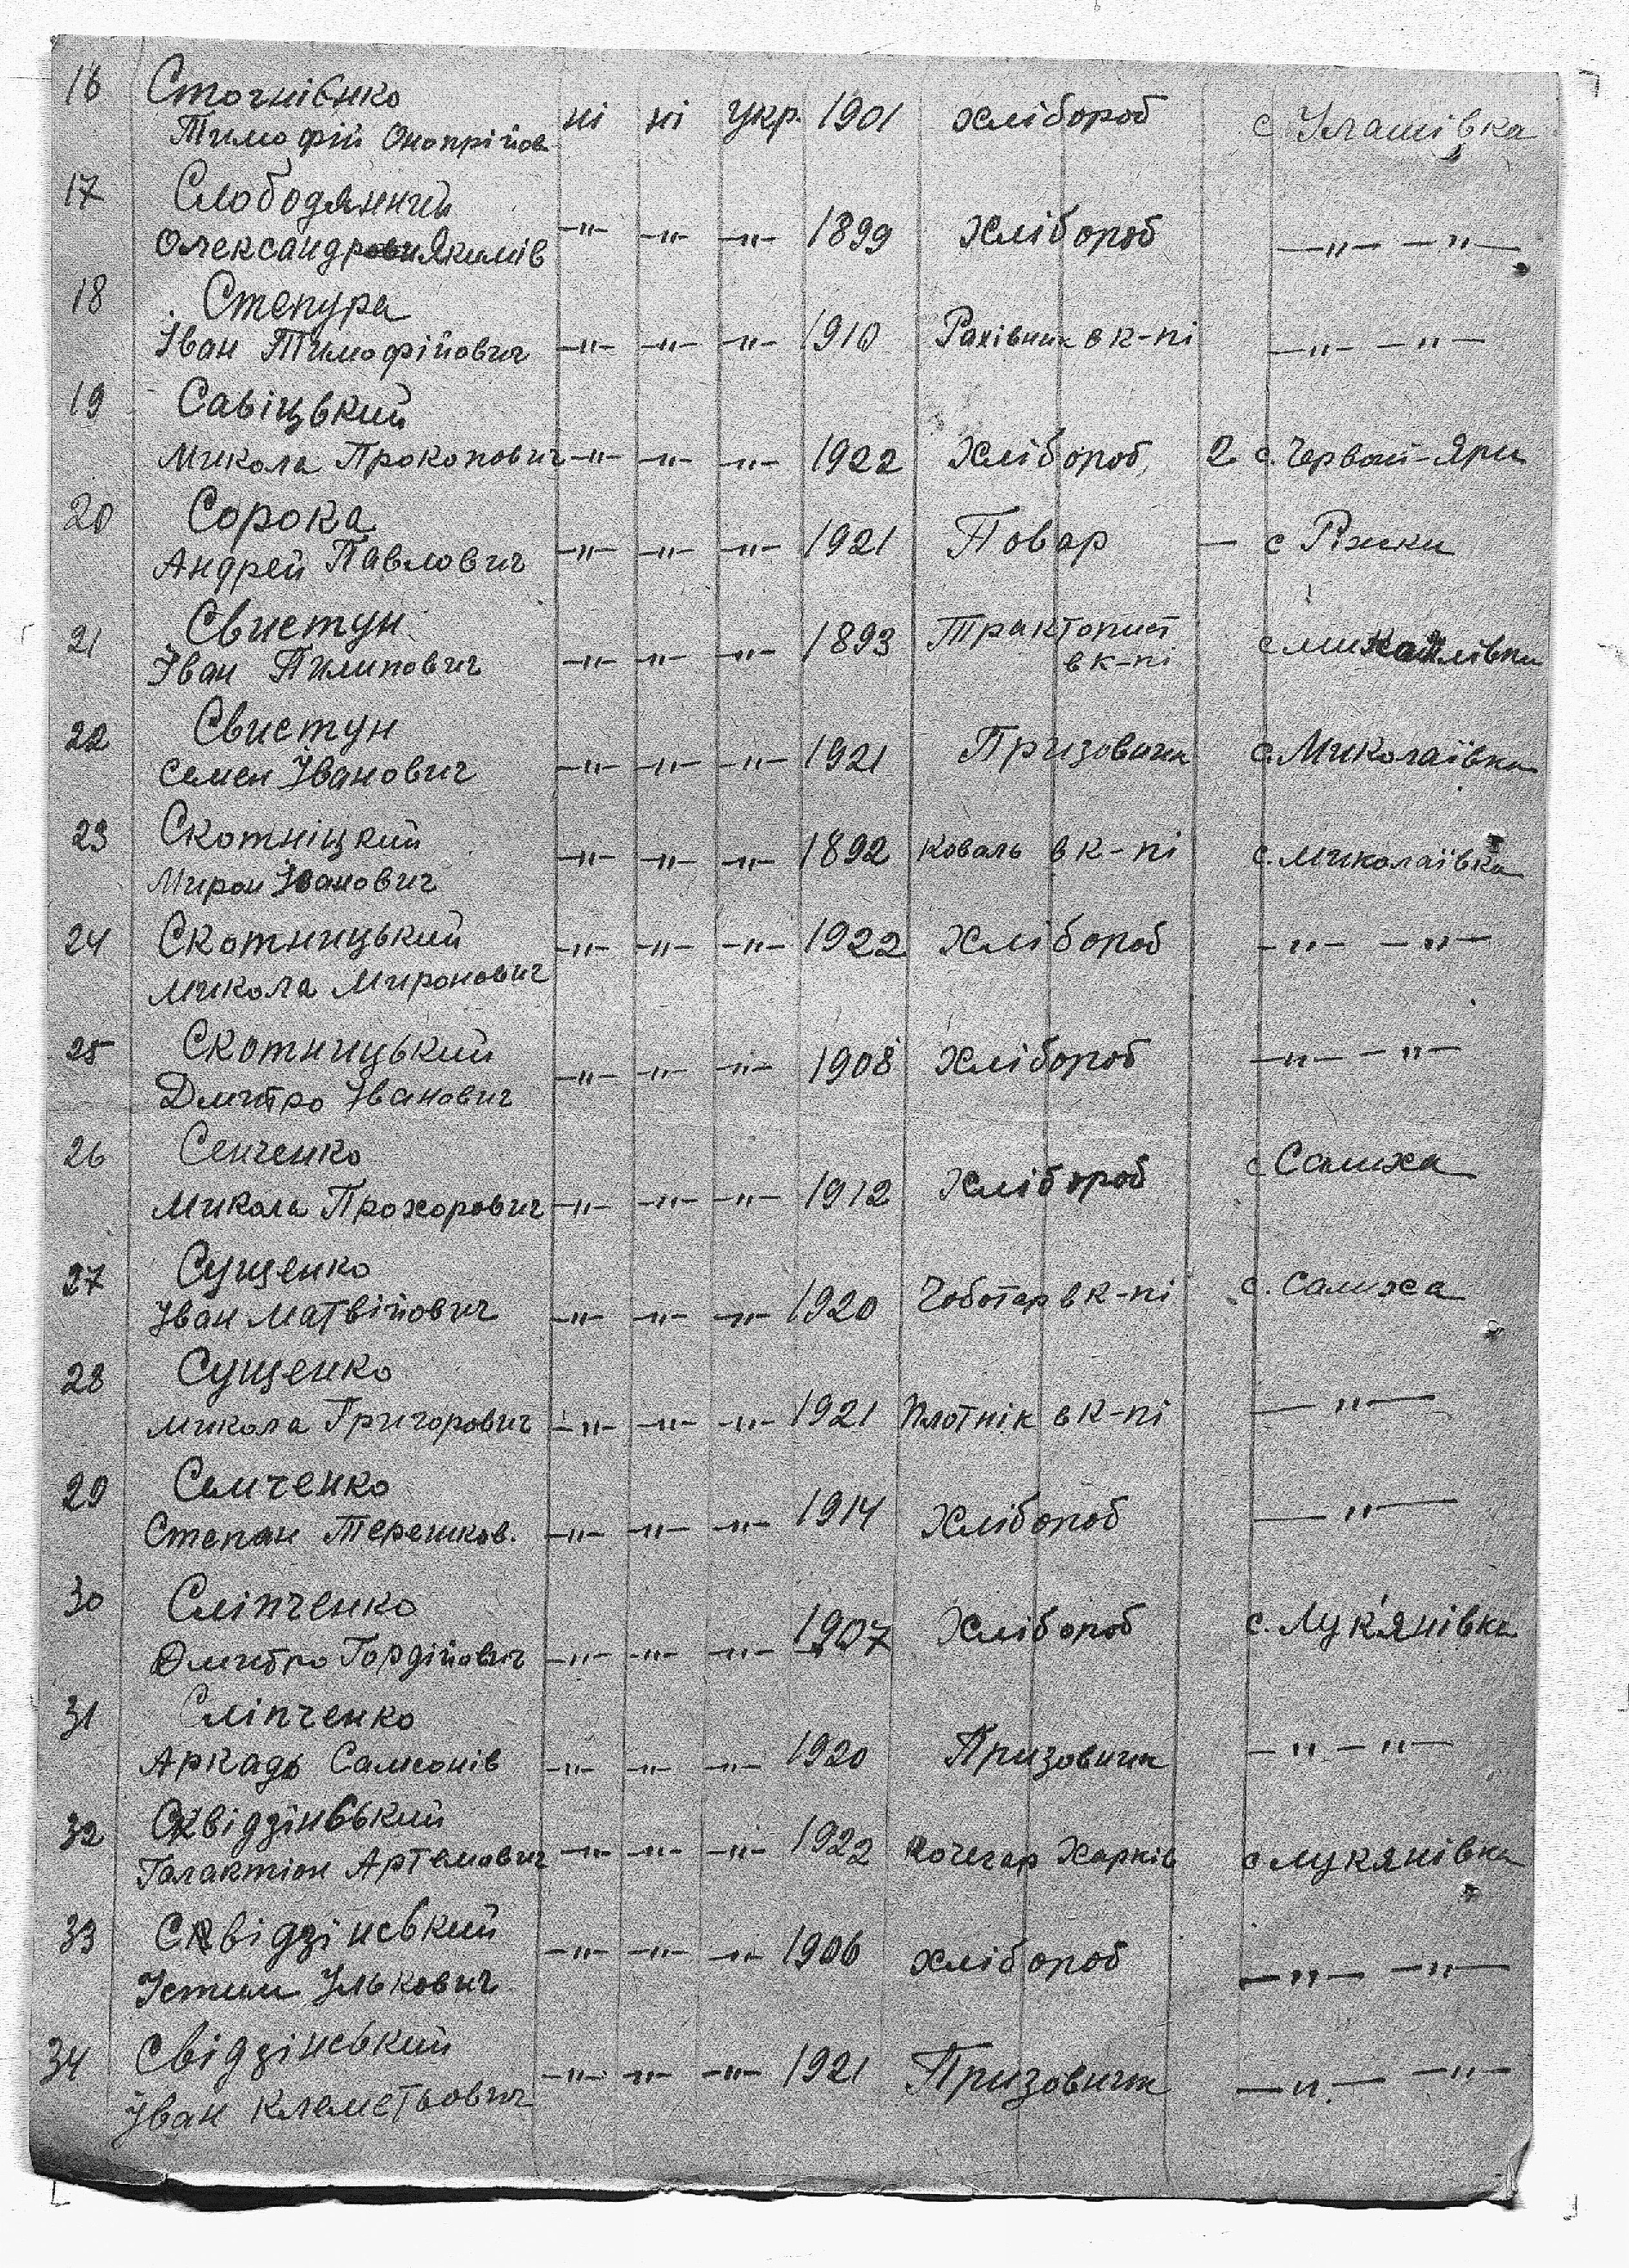 16 Стогнієнко
Тимофій Онопрійов ні ні укр. 1901 хлібороб с Улашівка
17 Слободяний
Олександр Якимів —"— —"— —"— 1899 Хлібороб —"— —"—
18 Степура
Іван Тимофійович —"— —"— —"— 1910 Рахівник в к-пі —"— —"—
19 Савіцький
Микола Прокопович —"— —"— —"— 1922 Хлібороб, 2 с. Червон-Яри
20 Сорока
Андрей Павлович —"— —"— —"— 1921 Повар — с Ріжки
21 Свистун
Іван Пилипович —"— —"— —"— 1893 Тракторист
в к-пі с Михайлівки
22 Свистун
Семен Іванович —"— —"— —"— 1921 Призовник с. Миколаївка
23 Скотніцкий
Мирон Іванович —"— —"— —"— 1892 коваль в к-пі с. Миколаївка
24 Скотницький
Микола Миронович —"— —"— —"— 1922 Хлібороб —"— —"—
25 Скотницький
Дмитро Іванович —"— —"— —"— 1908 Хлібороб —"— —"—
26 Сенченко
Микола Прохорович —"— —"— —"— 1912 Хлібороб с Салиха
27 Сущенко
Іван Матвійович —"— —"— —"— 1920 Чоботар в к-пі с. Салиха
28 Сущенко
Микола Григорович —"— —"— —"— 1921 Плотнік в к-пі —"—
29 Семченко
Степан Терешков. —"— —"— —"— 1914 Хлібороб —"—
30 Сліпченко
Дмитро Гордійович —"— —"— —"— 1907 Хлібороб с. Лук'янівка
31 Сліпченко
Аркадь Самсонів —"— —"— —"— 1920 Призовник —"— —"—
32 Сквідзінський
Галактіон Артемович —"— —"— —"— 1922 Кочегар Харків с Лукянівка
33 Сквідзінський
Устим Улькович —"— —"— —"— 1906 хлібороб —"— —"—
34 Свідзінський
Іван Клеметьович —"— —"— —"— 1921 Призовник —"— —"—